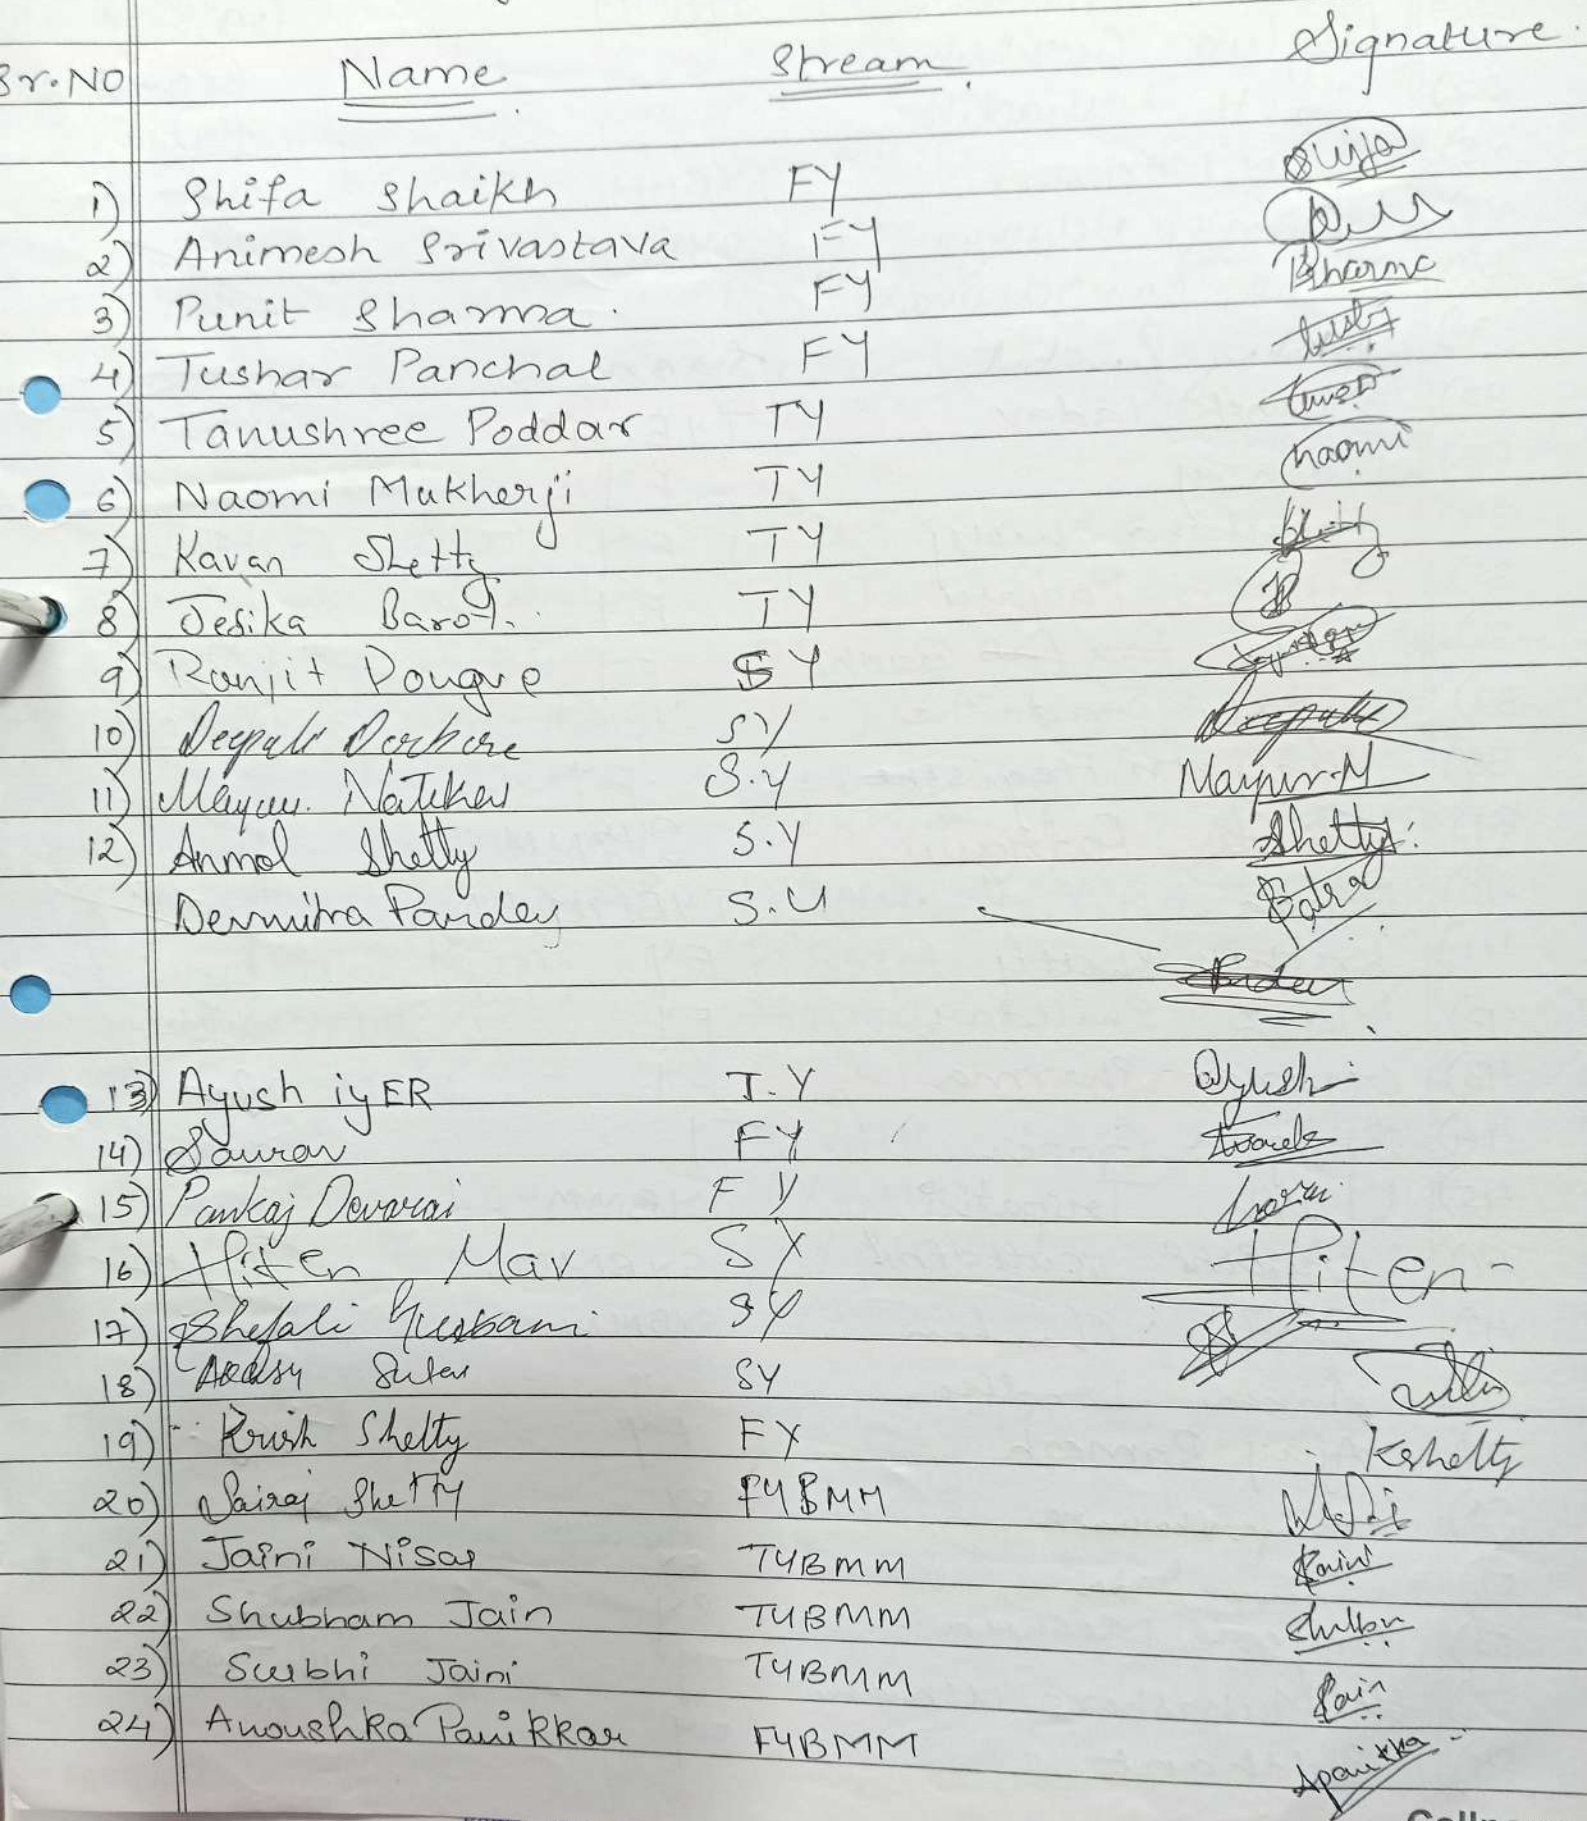 Sr.No Name Stream Signature
1) Shifa Shaikh FY
2) Animesh Srivastava FY
3) Punit Sharma FY Sharma
4) Tushar Panchal FY
5) Tanushree Poddar TY
6) Naomi Mukherji TY naomi
7) Kavan Shetty TY
8) Jesika Barot. TY
9) Ranjit Dongre SY
10) Deepali SY Deepali
11) Mayur. Natikar S.y Mayur.N
12) Anmol Shetty S.Y Shetty
Pandey S.Y
13) Ayush iyER T.Y Ayush
14) Saurav FY
15) Pankaj Devarai FY
16) Hiten Mav SY Hiten
17) Shefali SY
18) Sutar SY
19) Krish Shetty FY Kshetty
20) Sairaj Shetty FYBMM
21) Jaini Nisar TYBMM Jaini
22) Shubham Jain TYBMM
23) Surbhi Jaini TYBMM Jain
24) Anoushka Panikkar FYBMM Apanikka